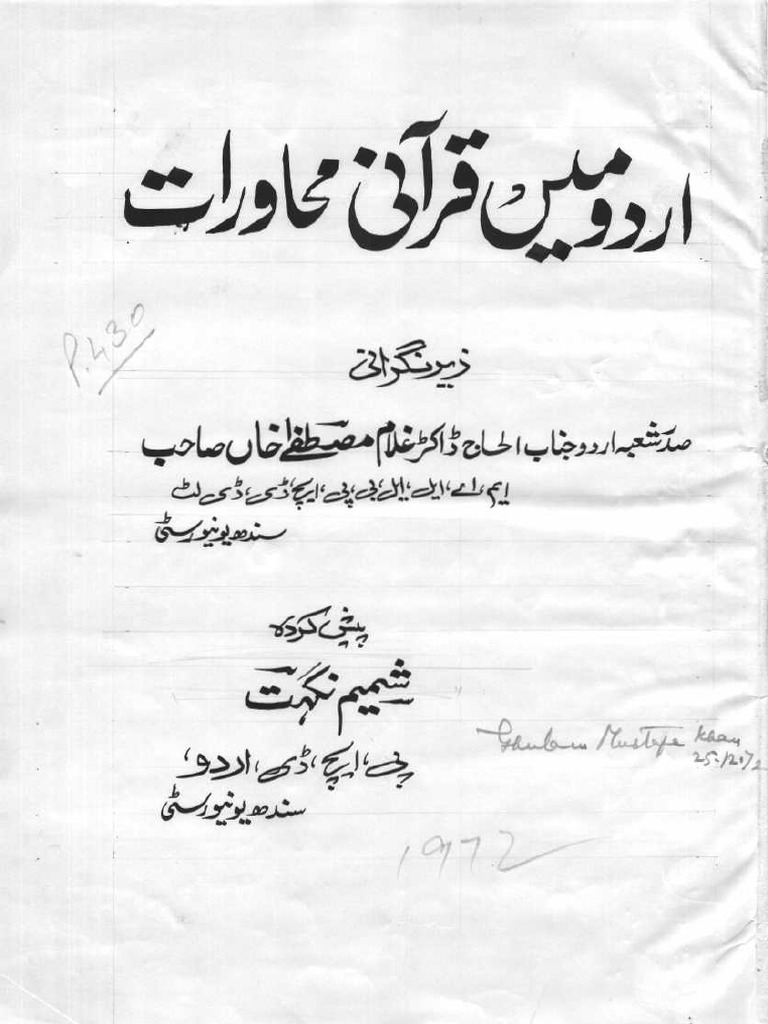 اردو میں قرآنی محاورات
P.430
زیر نگرانی
صدر شعبہ اردو جناب الحاج ڈاکٹر غلام مصطفےٰ خاں صاحب
ایم، اے، ایل، ایل، بی، پی، ایچ، ڈی، ڈی لٹ
سندھ یونیورسٹی
پیش کردہ
شمیم نگہت
Ghulam Mustafa Khan
25.12.72
پی، ایچ، ڈی، اردو،
سندھ یونیورسٹی
1972